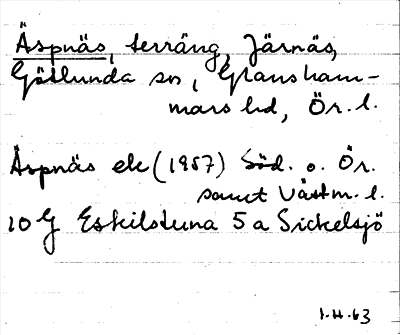 Äspnäs, terräng, Järnäs,
Götlunda sn, Glansham-
mars hd, Ör. l.
Äspnäs ek (1957) Söd. o. Ör.
samt Västm. l.
10 G Eskilstuna 5 a Sickelsjö
1.H.63